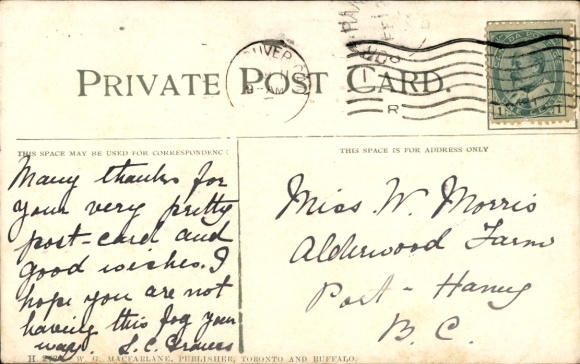 PRIVATE POST CARD.
9 - AM
R
THIS SPACE MAY BE USED FOR CORRESPONDENC
THIS SPACE IS FOR ADDRESS ONLY
Many thanks for
your very pretty
post-card and
good wishes. I
hope you are not
having this fog your
way
Miss W. Morris
Alderwood Farm
Port - Haney
B. C.
W. G. MACFARLANE, PUBLISHER, TORONTO AND BUFFALO.